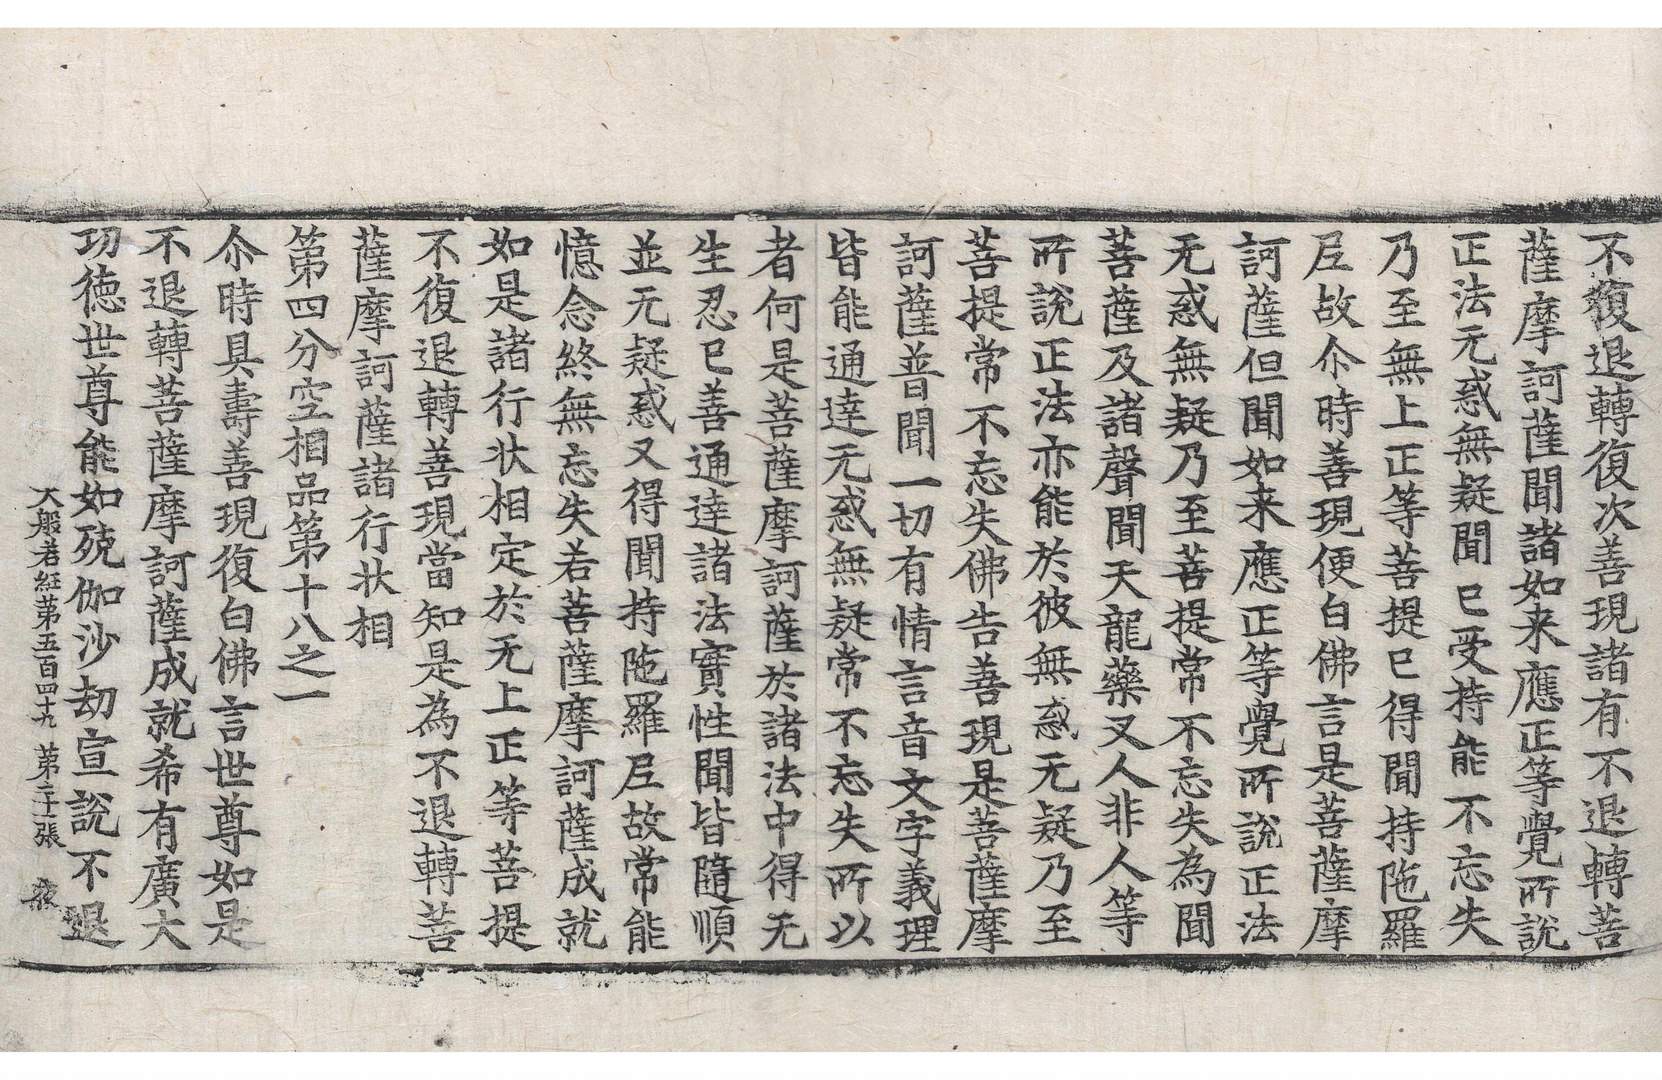 不復退轉復次善現諸有不退轉菩
薩摩訶薩聞諸如来應正等覺所說
正法无惑無疑聞已受持能不忘失
乃至無上正等菩提已得聞持陁羅
𡰱故尒時善現便白佛言是菩薩摩
訶薩但聞如来應正等覺所說正法
无惑無疑乃至菩提常不忘失為聞
菩薩及諸聲聞天龍藥叉人非人等
所說正法亦能於彼無惑无疑乃至
菩提常不忘失佛告善現是菩薩摩
訶薩普聞一切有情言音文字義理
皆能通達无惑無疑常不忘失所以
者何是菩薩摩訶薩於諸法中得无
生忍已善通達諸法實性聞皆隨順
並无疑惑又得聞持陁羅𡰱故常能
憶念終無忘失若菩薩摩訶薩成就
如是諸行状相定於无上正等菩提
不復退轉善現當知是為不退轉菩
薩摩訶薩諸行状相
第四分空相品第十八之一
尒時具壽善現復白佛言世尊如是
不退轉菩薩摩訶薩成就希有廣大
功徳世尊能如殑伽沙劫宣說不退
大般若経苐五百四十九 苐二十張